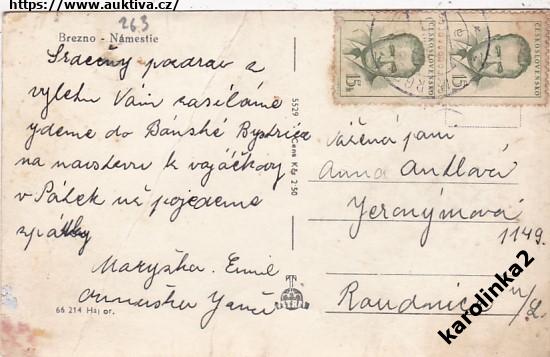 https://www.auktiva.cz/
263
Brezno - Námestie
Srdečný pozdrav z
výletu Vám zasíláme
jdeme do Bánské Bystrice
na navstevu k vojáčkovy
v Pátek už pojedeme
zpátky
Maryška. Emil
Jana
66 214 Haj or.
5529
Cena Kčs 2·50
ČESKOSLOVENSKO
15h
ČESKOSLOVENSKO
15h
Vážená paní
Anna Andlová
Jeronýmová
1149.
Roudnice n/L.
karolinka2